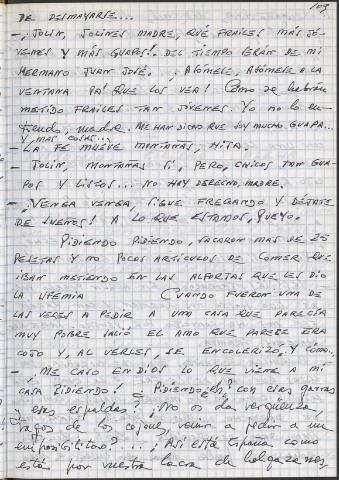 103
DE DESMAYARSE...
—¡JOLÍN, JOLINES MADRE, QUÉ FRAILES MÁS JÓ-
VENES Y MÁS GUAPOS!. DEL TIEMPO ERAN DE MI
HERMANO JUAN JOSÉ. ¡ASÓMESE, ASÓMESE A LA
VENTANA PA' QUE LOS VEA! CÓMO se habrán
METIDO FRAILES TAN JÓVENES. Yo no lo en-
tiendo, madre. ME HAN DICHO QUE SOY MUCHO GUAPA...
Y MÁS COSAS...
— LA FE MUEVE MONTAÑAS, HITA.
— JOLÍN, MONTAÑAS SÍ, PERO, CHICOS TAN GUA-
POS Y LISTOS... NO HAY DERECHO, MADRE.
—¡VENGA VENGA, SIGUE FREGANDO Y DÉJATE
DE SUEÑOS! A LO QUE ESTAMOS, PUEYO.
PIDIENDO PIDIENDO, SACARON MÁS DE 25
PESETAS Y NO POCOS ARTÍCULOS DE COMER QUE
IBAN METIENDO EN LAS ALFORJAS QUE LES DIO
LA UFEMIA CUANDO FUERON UNA DE
LAS VECES A PEDIR A UNA CASA QUE PARECÍA
MUY POBRE SALIÓ EL AMO QUE PARECE ERA
COJO Y, AL VERLES, SE ENCOLERIZÓ, Y CÓMO...
—¡ME CASO EN DIOS LO QUE VIENE A MI
CASA PIDIENDO! ¿PIDIENDO eh? con esas garras
y esas espaldas? ¿¡No os da vergüenza,
vagos de los cojones, venir a pedir a un
imposibilitao?...¡Así está España como
está por vuestra lacra de holgazanes,